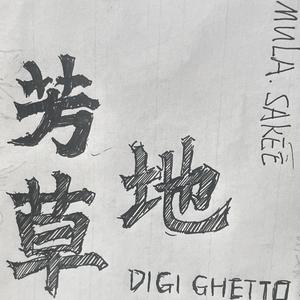 芳草
地
MULA SAKÉE
DIGI GHETTO